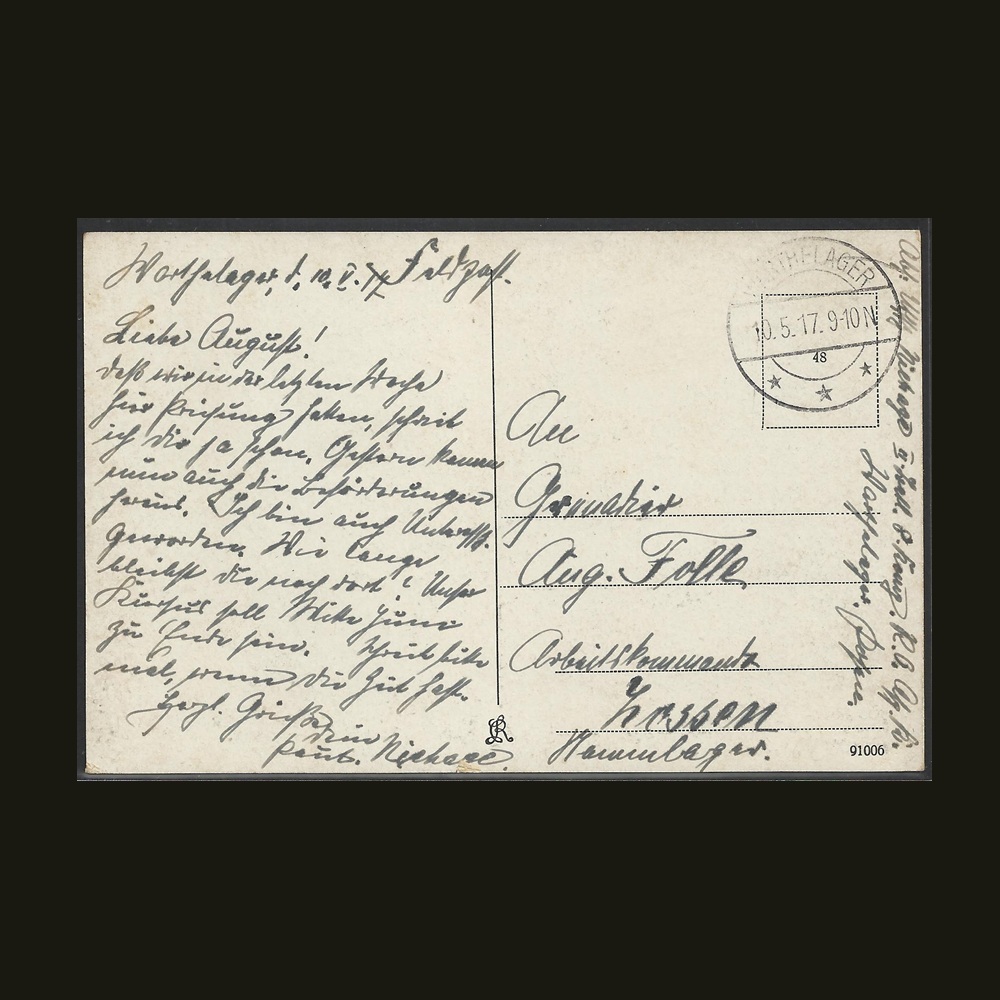 Warthelager, d. 10.V.17 Feldpost.
Liebe August!
daß wir in der letzten Woche
hier Prüfung hatten, schrieb
ich dir ja schon. Gestern kamen
nun auch die Beförderungen
heraus. Ich bin auch Unteroffz.
geworden. Wie lange
bleibst du noch dort? Unser
Kursus soll Mitte Juni
zu Ende sein. Schreib bitte
mal, wenn du Zeit hast.
Herzl. Grüße dein
Richard.
WARTHELAGER
10.5.17. 9-10 N
48
An
Grenadier
Aug. Folle
Arbeitskommando
Zossen
Stammlager.
91006
Abs. Utffz.
Warthelager Posen.